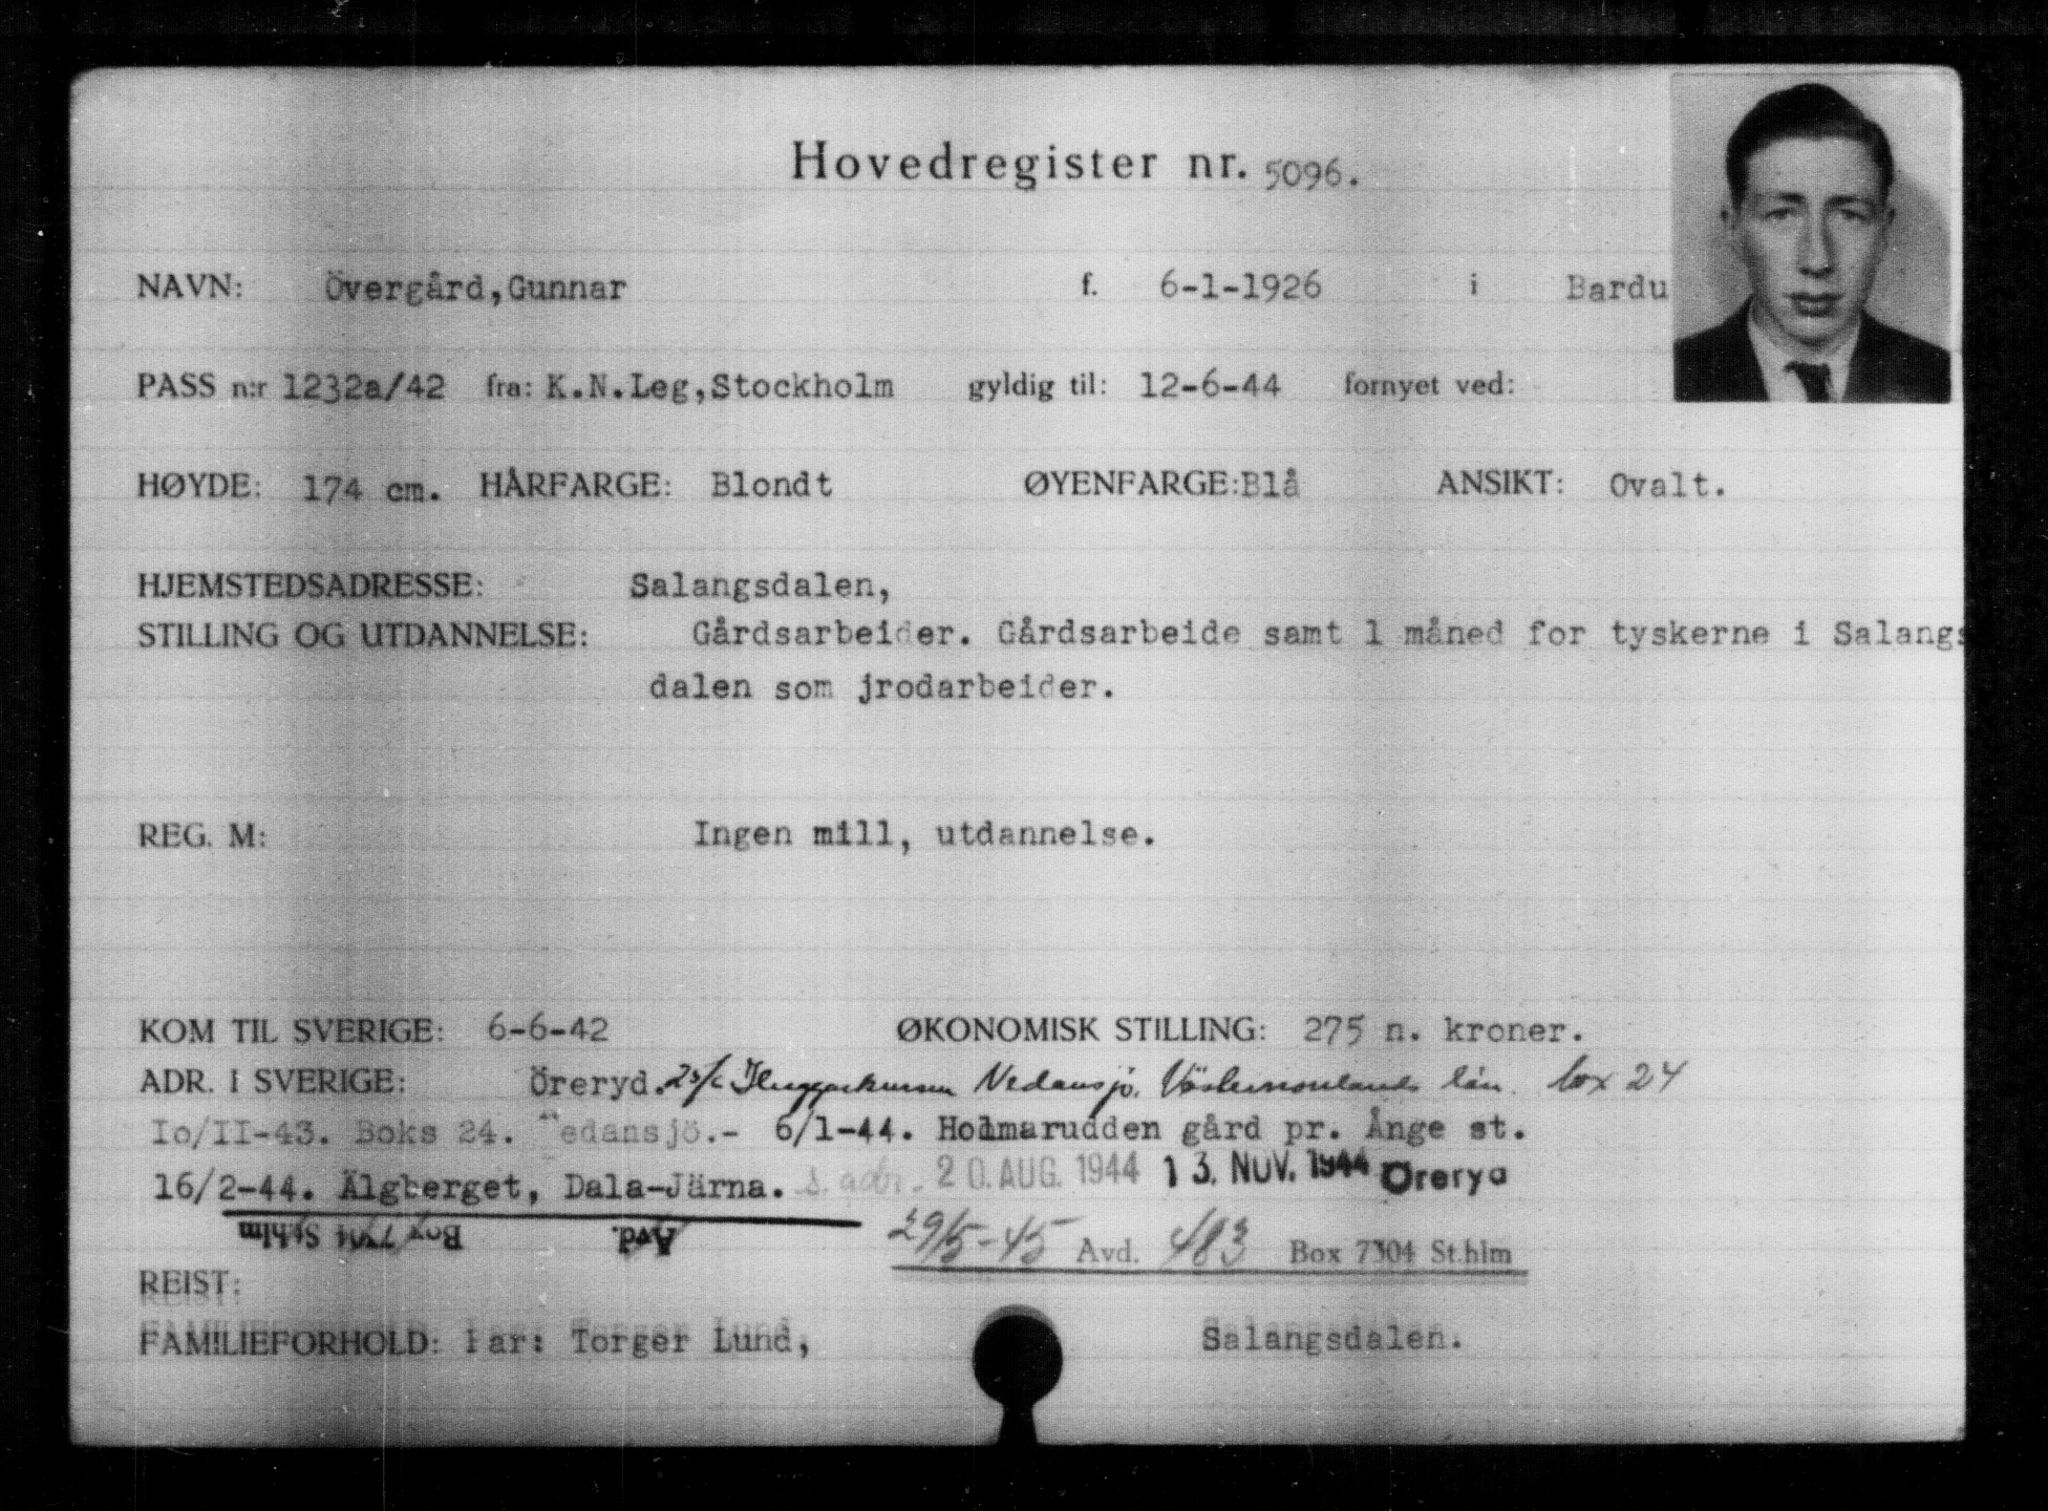 Hovedregister nr. 5096.
NAVN: Övergård,Gunnar f. 6-1-1926 i Bardu
PASS n:r 1232a/42 fra: K.N.Leg,Stockholm gyldig til: 12-6-44 fornyet ved:
HØYDE: 174 cm. HÅRFARGE: Blondt ØYENFARGE: Blå ANSIKT: Ovalt.
HJEMSTEDSADRESSE: Salangsdalen,
STILLING OG UTDANNELSE: Gårdsarbeider. Gårdsarbeide samt 1 måned for tyskerne i Salangs
dalen som jrodarbeider.
REG. M: Ingen mill, utdannelse.
KOM TIL SVERIGE: 6-6-42 ØKONOMISK STILLING: 275 n. kroner.
ADR. I SVERIGE: Öreryd. Vedansjö. Västernorlands län. box 24
Io/II-43. Boks 24. edansjö.- 6/1-44. Holmarudden gård pr. Ånge st.
16/2-44. Älgberget, Dala-Järna. s. adr. 20. AUG. 1944 13. NOV. 1944 Öreryd
Avd. Box 7304 St.hlm
29/5-45 Avd. 483 Box 7304 St.hlm
REIST:
FAMILIEFORHOLD: Far: Torger Lund, Salangsdalen.